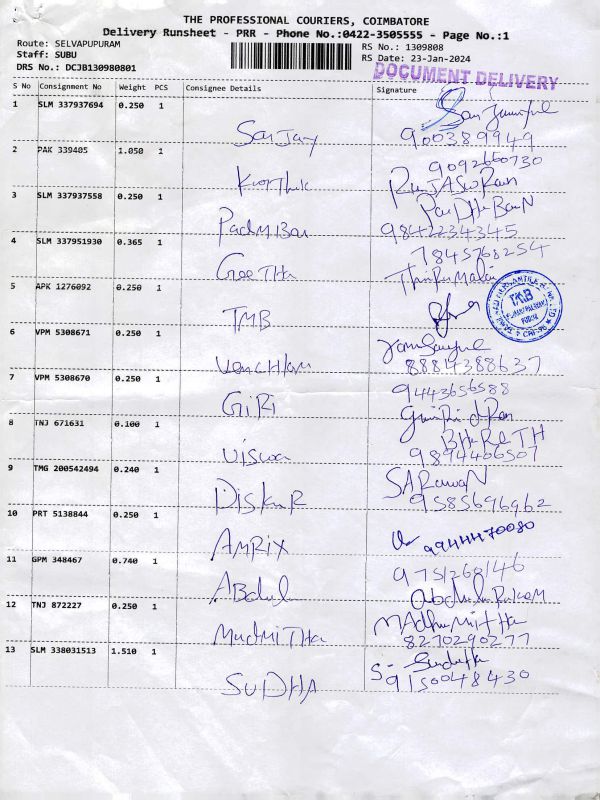 THE PROFESSIONAL COURIERS, COIMBATORE
Delivery Runsheet - PRR - Phone No.:0422-3505555 - Page No.:1
Route: SELVAPUPURAM
Staff: SUBU
DRS No.: DCJB130980801
RS No.: 1309808
RS Date: 23-Jan-2024
DOCUMENT DELIVERY
S No Consignment No Weight PCS Consignee Details Signature
1 SLM 337937694 0.250 1
Sanjay 900389949
2 PAK 339405 1.050 1
9092660730
Karthik
3 SLM 337937558 0.250 1
Padmbai 9842234345
4 SLM 337951930 0.365 1
7845768254
GeeTha Thirumalai
5 APK 1276092 0.250 1
TMB
TMB
6 VPM 5308671 0.250 1
8884388637
7 VPM 5308670 0.250 1
9443656588
GiRi
8 TNJ 671631 0.100 1
BHaRaTH
Viswa 9894406507
9 TMG 200542494 0.240 1
SARavaN
9585696962
10 PRT 5138844 0.250 1
9944470080
AMRIX
11 GPM 348467 0.740 1
9751260146
ABdul
12 TNJ 872227 0.250 1
MAdhumiTHa
MudmiTHa 8270290277
13 SLM 338031513 1.510 1
S-
SUDHA 9150048430